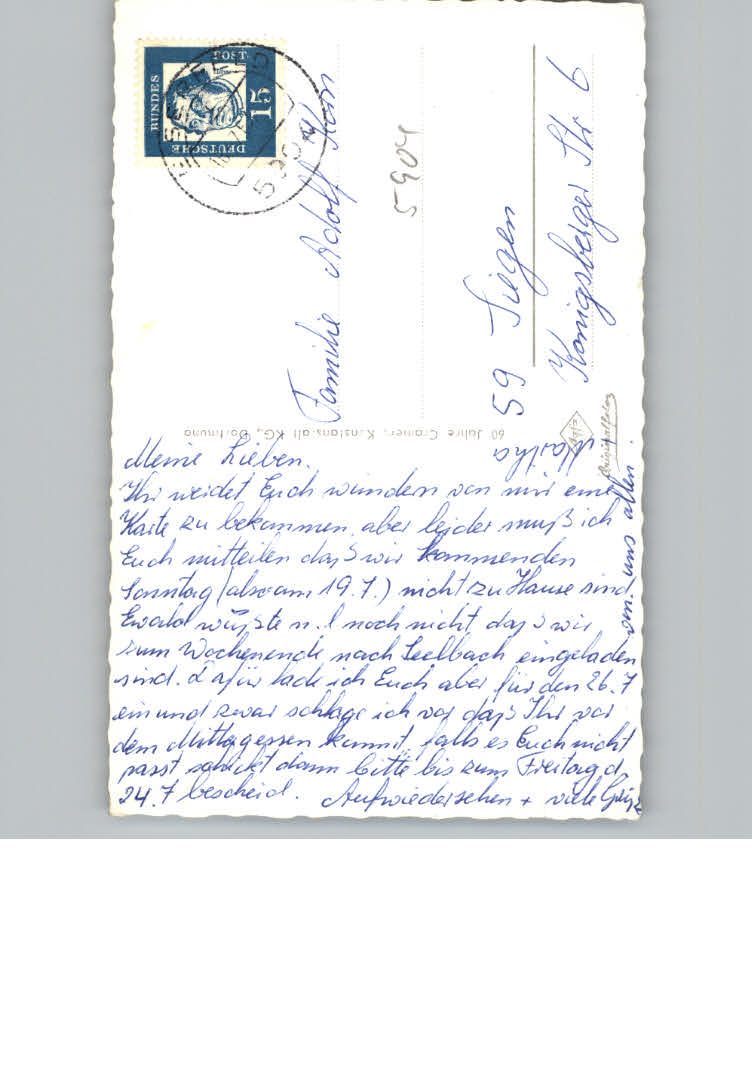 Meine Lieben.
Ihr werdet Euch wundern von mir eine
Karte zu bekommen, aber leider muß ich
Euch mitteilen daß wir kommenden
Sonntag (also am 19.7.) nicht zu Hause sind.
Ewald wußte n. l noch nicht daß wir
zum Wochenende nach Seelbach eingeladen
sind. Dafür lade ich Euch aber für den 26.7
ein und zwar schlage ich vor daß Ihr vor
dem Mittagessen kommt, falls es Euch nicht
passt schickt dann bitte bis zum Freitag d.
24.7 bescheid. Aufwiedersehen + viele Grüße
von uns allen
Martha
Familie Adolf Klom
59 Siegen
Königsberger Str 6
5904
DEUTSCHE
BUNDES
POST
15
60 Jahre Cramers Kunstanstalt KG., Dortmund